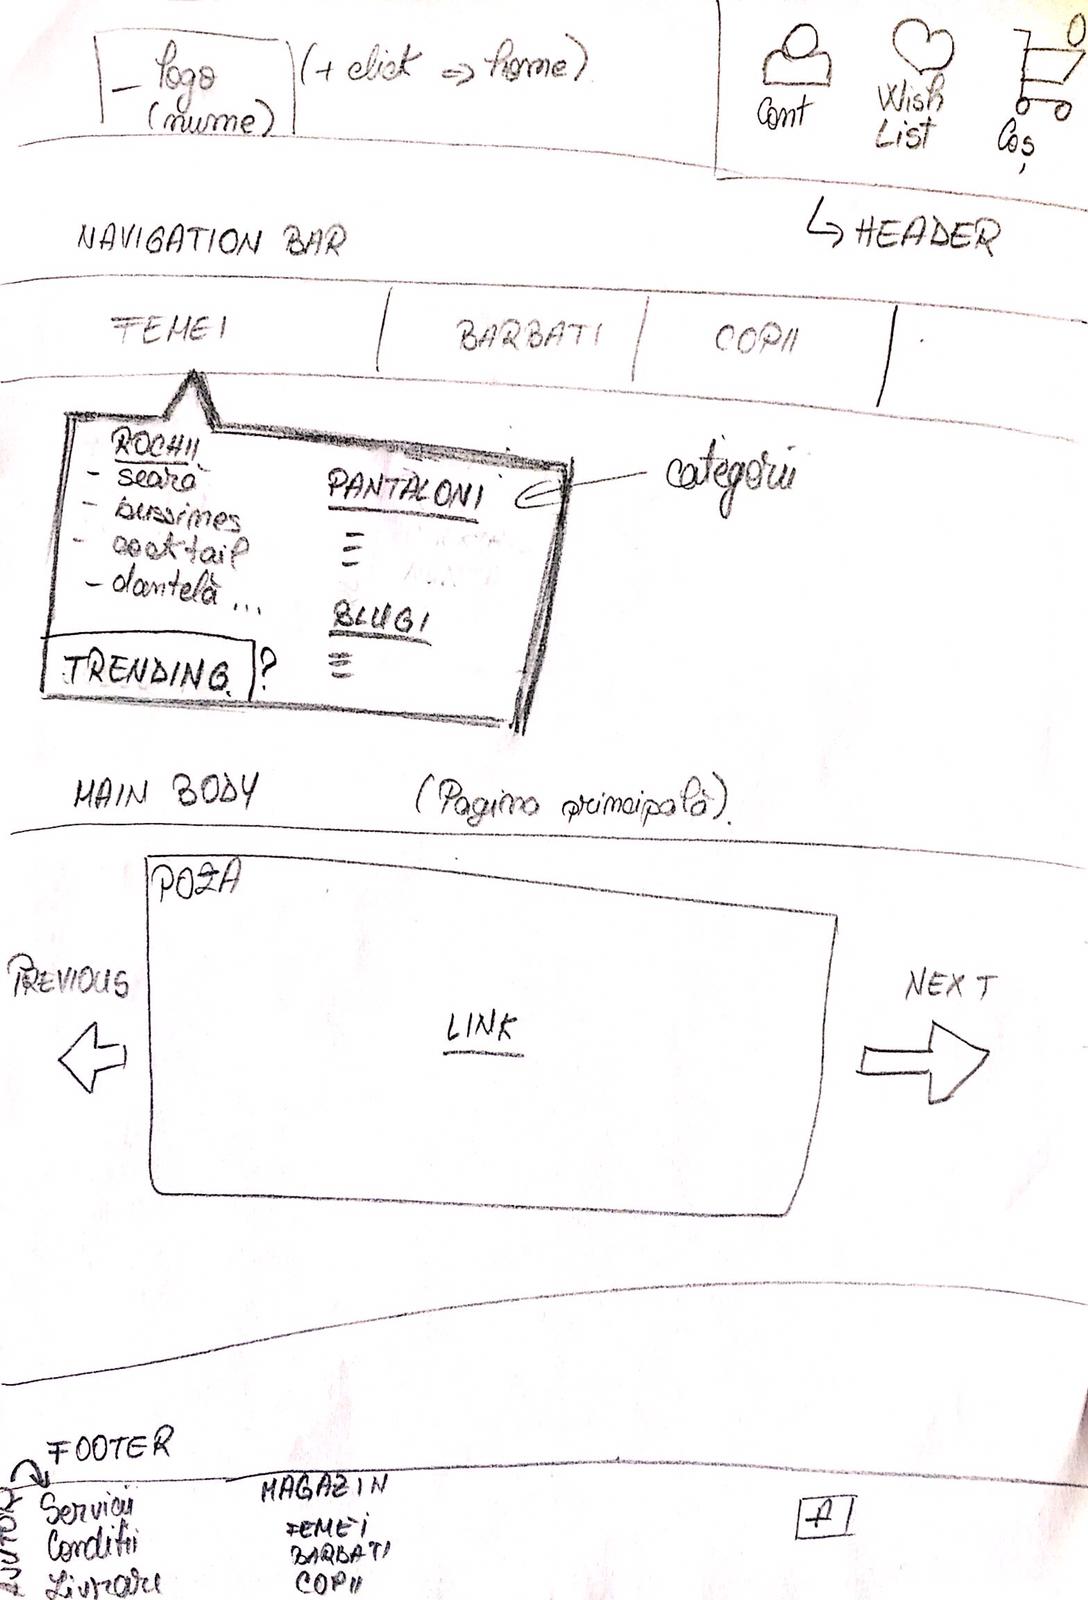 - logo (+ click => home)
(nume)
Cont
Wish
List
Coș
0
↳ HEADER
NAVIGATION BAR
FEMEI BARBATI COPII
ROCHII
- seară
- bussines
- cocktail
- dantelă ...
TRENDING ?
PANTALONI
BLUGI
categorii
MAIN BODY (Pagina principală).
POZA
PREVIOUS
LINK
NEXT
FOOTER
AJUTOR
Servicii
Conditii
Livrare
MAGAZIN
FEMEI
BARBATI
COPII